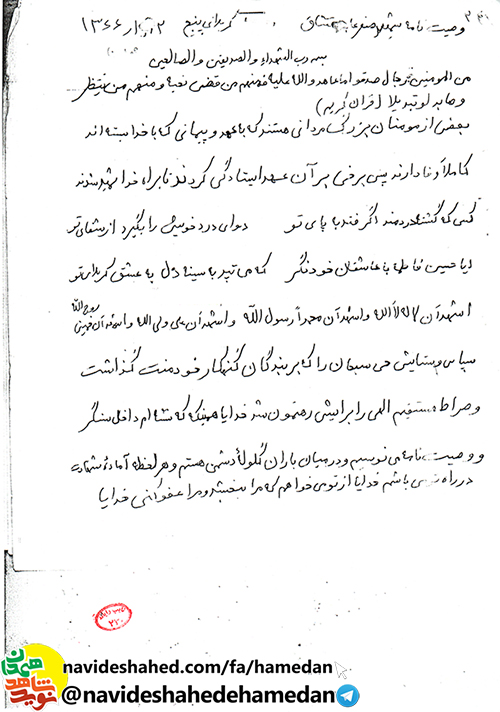 وصیت نامه شهید مشتاق کربلای پنج ۱۳۶۶
بسم رب الشهداء و الصدیقین و الصالحین
من المومنین رجال صدقوا ما عاهدو الله علیه فمنهم من قضی نحبه و منهم من ینتظر
و ما بدلو تبدیلا (قران کریم)
بعضی از مومنان بزرگ مردانی هستند که به عهد و پیمانی که با خدا بسته اند
کاملاً وفا دارند پس برخی بر آن عهد ایستادگی کردند تا براه خدا شهید شدند
کسی که گشته دردمند اگر فتد به پای تو دوای درد خویش را بگیرد از شفای تو
ایا حسین فاطمه با عاشقان خود نگر که می تپد به سینه دل به عشق کربلای تو
اشهد آن لا اله الا الله و اشهد آن محمداً رسول الله و اشهد آن علی ولی الله و اشهد آن خمینی روح الله
سپاس و ستایش می سبحان را که بر بندگان گنهکار خود منت گذاشت
و صراط مستقیم الهی را برایش رهنمون شد خدایا همینکه که شام داخل سنگر
و وصیت نامه می نویسم و در میان باران گلوله دشمن هستم و هر لحظه آماده شهادت
در راه تو می باشم خدایا از تو می خواهم که مرا ببخشید و مرا عفو کنی خدایا
navideshahed.com/fa/hamedan
@navideshahedehamedan
نوید شاهد همدان